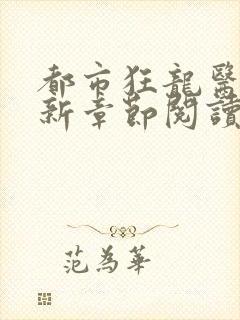 都市狂龍醫
新章節閱讀
范為華